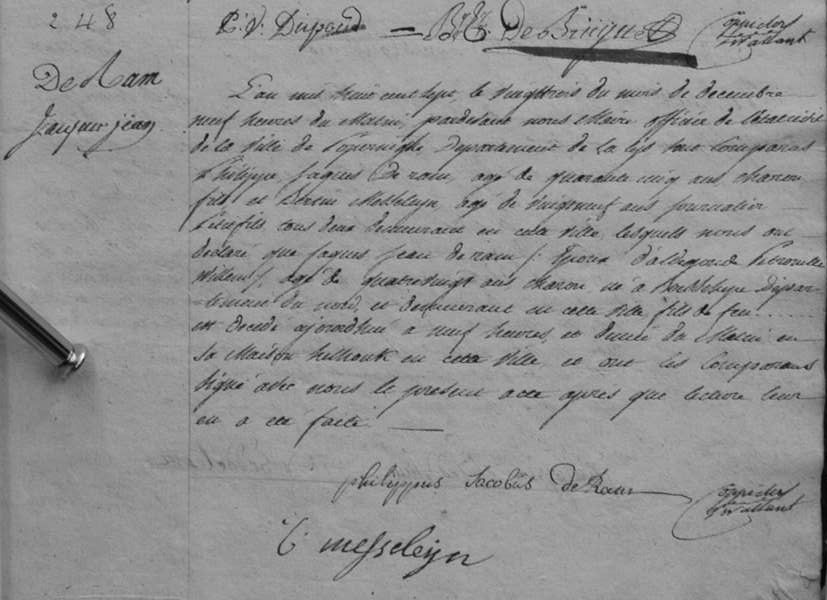 248
P. V. Dupond = De Bricque
De Ram
Jacques jean
L'an mil huit cent sept, le vingt trois du mois de decembre
neuf heures du Matin, pardevant nous Maire officier de l'etat civil
de la ville de Poperinghe, Departement de la Lys sont Comparus
Philippe Jaques De ram, agé de quarante cinq ans, charon
fils et Messeleyn, agé de ans journalier
tous deux demeurant en cette ville, lesquels nous ont
declaré que Jaques Jean de ram, Epoux d'Alegonde Petronille
Willems, agé de quatrevingt ans charon né à Depar-
-tement du nord, et demeurant en cette ville fils de feu ......
est decedé ajourdhui à neuf heures, et demie du Matin en
sa Maison en cette ville, et ont les Comparans
signé avec nous le present acte apres que lecture leur
en a été faite
philippus Jacobus de Ram
messeleyn